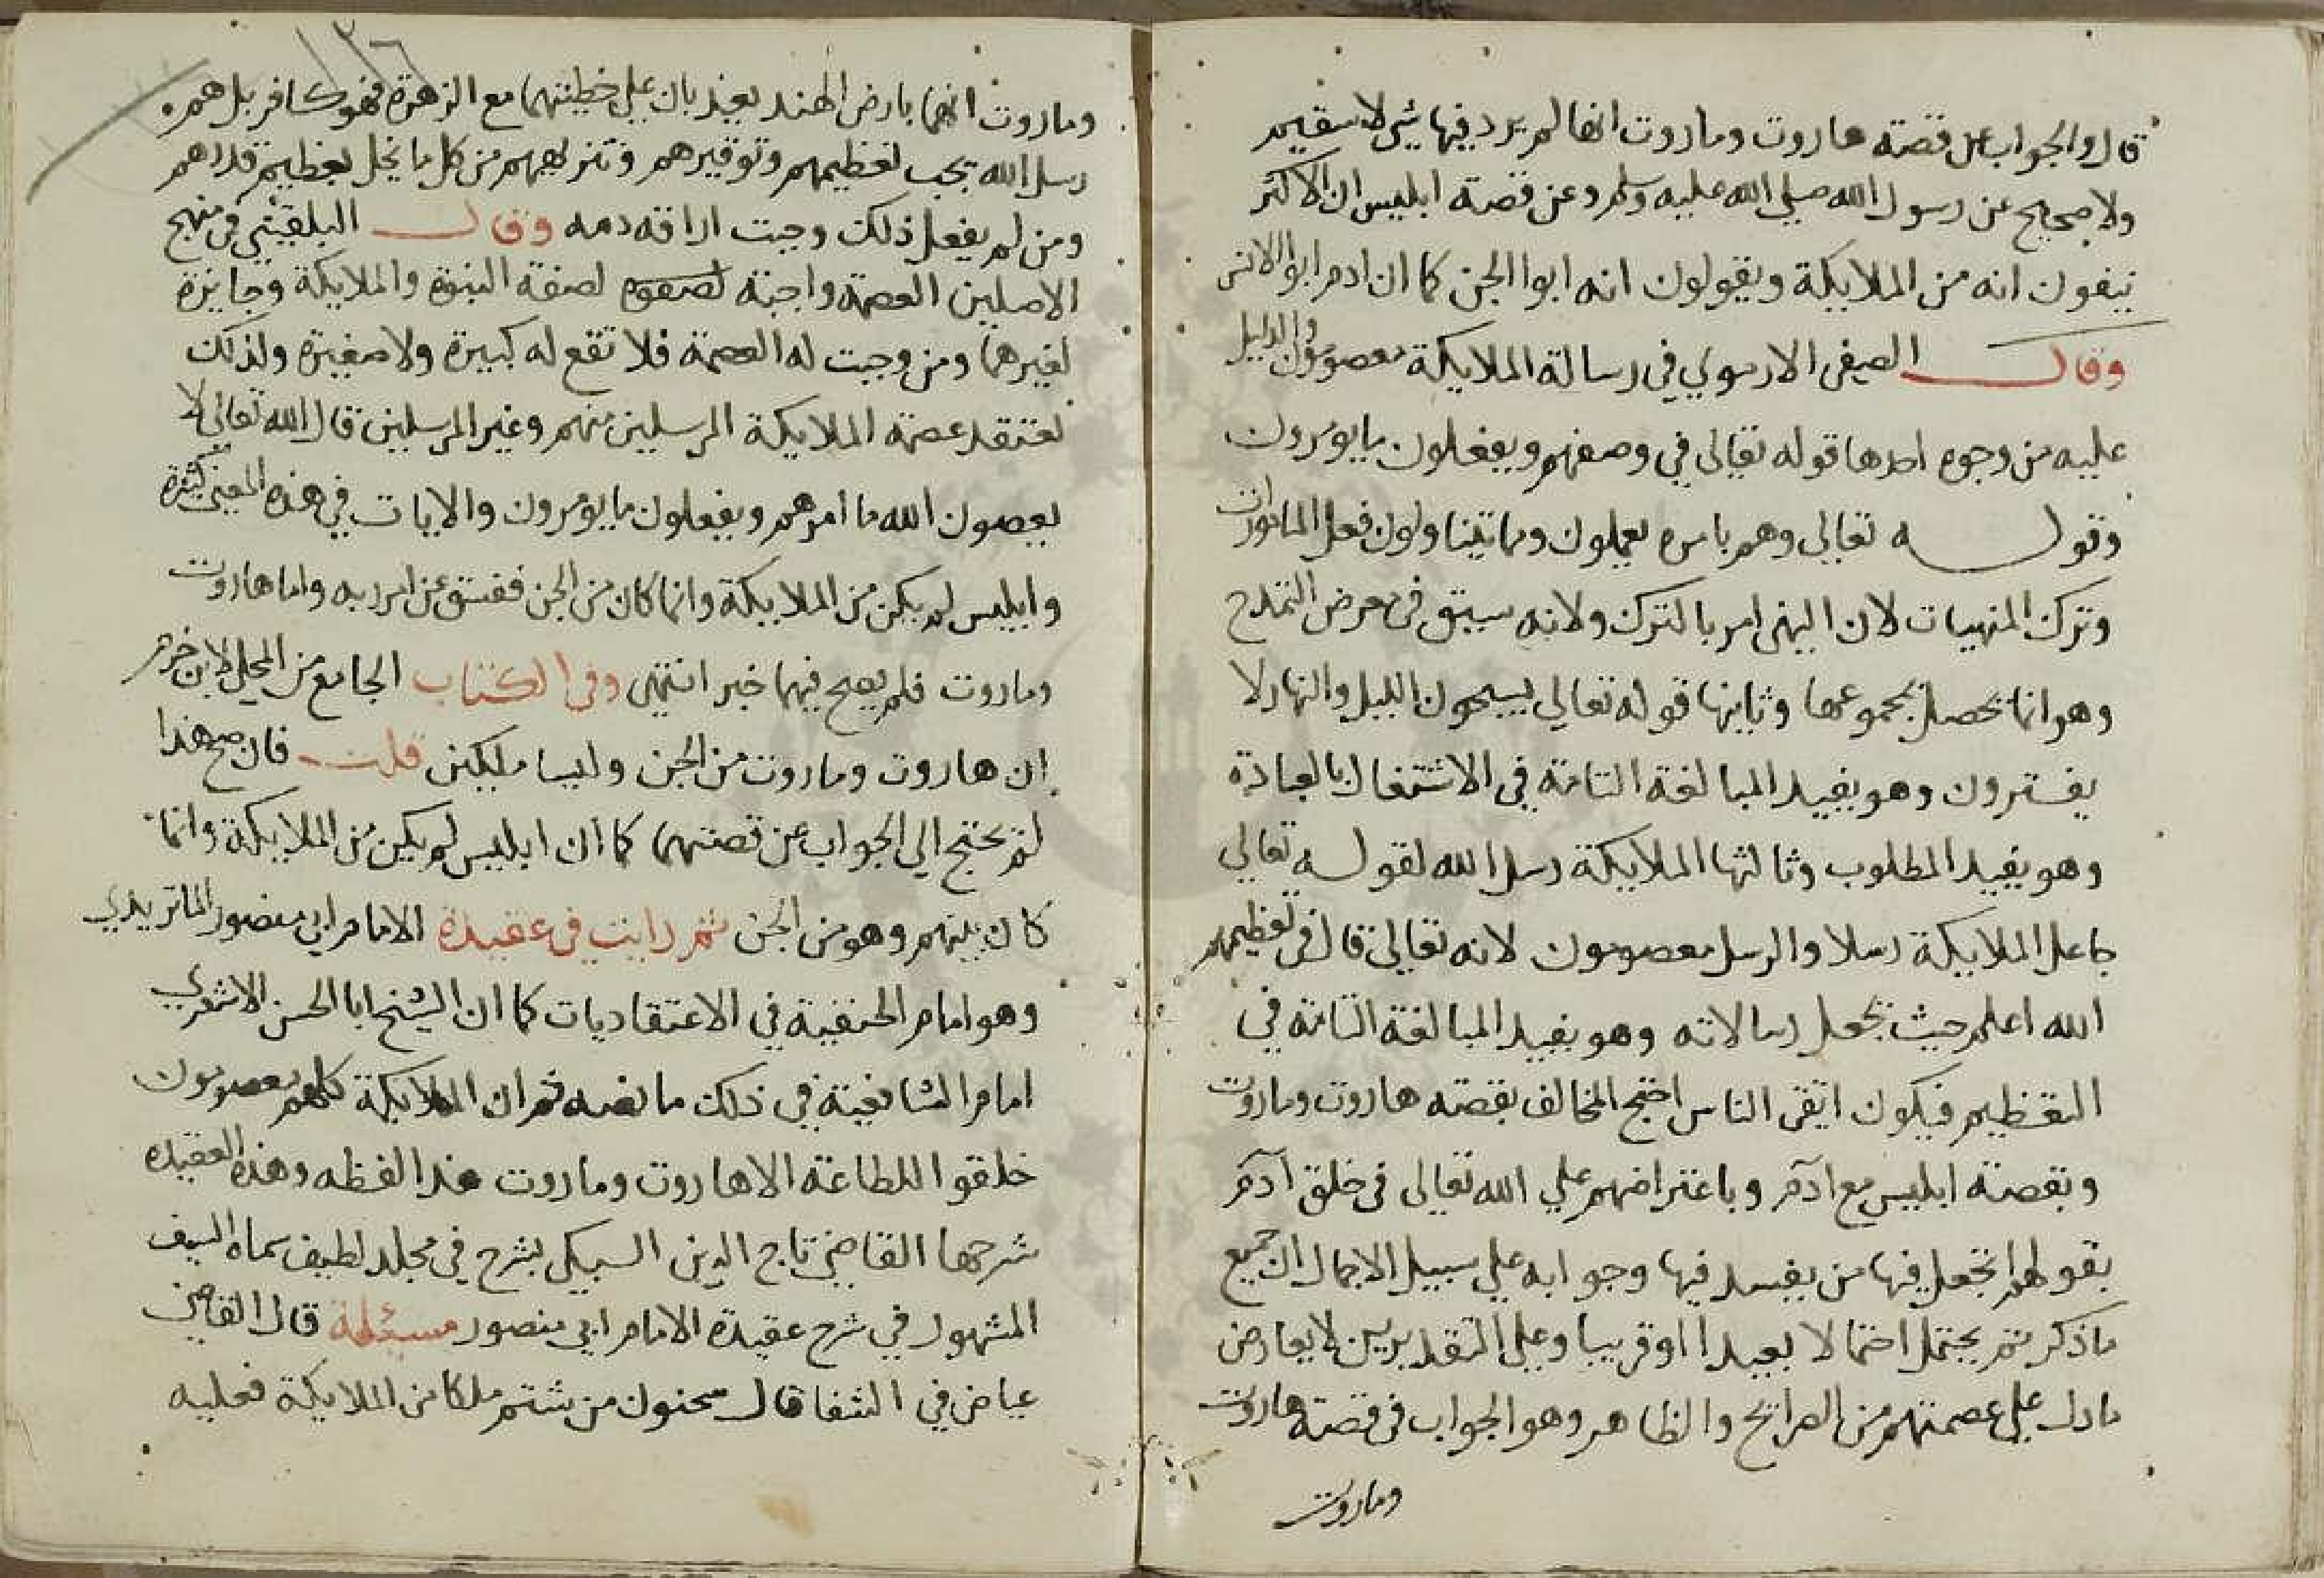 قال والجواب عن قصته هاروت وماروت انها لم يرد فيها شي لا سقيم
ولا صحيح عن رسول الله صلي الله عليه وسلم وعن قصة ابليس ان الاكثر
ينفون انه من الملايكة ويقولون انه ابوا الجن كما ان ادم ابوا الانس
وقال الصيفى الارموي في رسالة الملايكة معصومون والدليل
عليه من وجوه احدها قوله تعالى في وصفهم ويفعلون ما يومرون
وقوله تعالى وهم بامره يعملون ومما يتناولون فعل المامورات
وترك المنهيات لان النهى امر بالترك ولانه سيق فى معرض التمدح
وهو انما يحصل بمجموعها وثانيها قوله تعالي يسبحون الليل والنهار لا
يفترون وهو يفيد المبالغة التامة في الاشتغال بالعبادة
وهو يفيد المطلوب وثالثها الملايكة رسل الله لقوله تعالي
جاعل الملايكة رسلا والرسل معصومون لانه تعالى قال فى تعظيمهم
الله اعلم حيث يجعل رسالاته وهو يفيد المبالغة التامة في
التعظيم فيكون اتقى الناس احتج المخالف بقصته هاروت وماروت
وبقصة ابليس مع آدم وباعتراضهم علي الله تعالى فى خلق آدم
بقولهم اتجعل فيها من يفسد فيها وجوابه علي سبيل الاجمال ان جميع
ما ذكرتم يحتمل احتمالا بعيدا او قريبا وعلى التقديرين لا يعارض
ما دل علي عصمتهم من الصرايح والظاهر وهو الجواب فى قصته هاروت
وماروت
١٢٦
وماروت انهما بارض الهند يعذبان علي خطيئتهما مع الزهرة فهو كافر بل هم
رسل الله يجب تعظيمهم وتوقيرهم وتنزيههم من كل ما يخل بعظيم قدرهم
ومن لم يفعل ذلك وجبت اراقة دمه وقال البلقينى فى منهج
الاصلين العصمة واجبة لصفة النبوة والملايكة وجايزة
لغيرهما ومن وجبت له العصمة فلا تقع له كبيرة ولا صغيرة ولذلك
نعتقد عصمة الملايكة المرسلين منهم وغير المرسلين قال الله تعالى لا
يعصون الله ما امرهم ويفعلون ما يومرون والايات في هذه المعنى كثيرة
وابليس لم يكن من الملايكة وانما كان من الجن ففسق عن امر ربه واما هاروت
وماروت فلم يصح فيهما خبر انتهى وفى الكتاب الجامع من المحلى لابن حزم
ان هاروت وماروت من الجن وليسا ملكين قلت فان صح هذا
لم يحتج الي الجواب عن قصتهما كما ان ابليس لم يكن من الملايكة وانما
كان بينهم وهو من الجن ثم رايت فى عقيدة الامام ابي منصور الماتريدي
وهو امام الحنفية في الاعتقاديات كما ان الشيخ ابا الحسن الاشعري
امام الشافعية في ذلك ما نصه ثم ان الملايكة كلهم معصومون
خلقوا للطاعة الا هاروت وماروت هذا لفظه وهذه العقيدة
شرحها القاضي تاج الدين السبكى بشرح في مجلد لطيف سماه السيف
المشهور في شرح عقيدة الامام ابي منصور مسئلة قال القاضى
عياض في الشفا قال سحنون من شتم ملكا من الملايكة فعليه